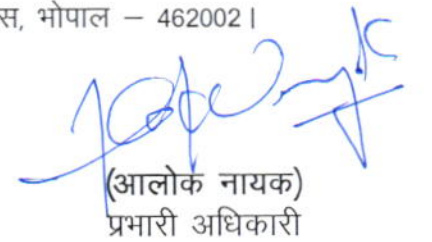 स, भोपाल – 462002।
(आलोक नायक)
प्रभारी अधिकारी